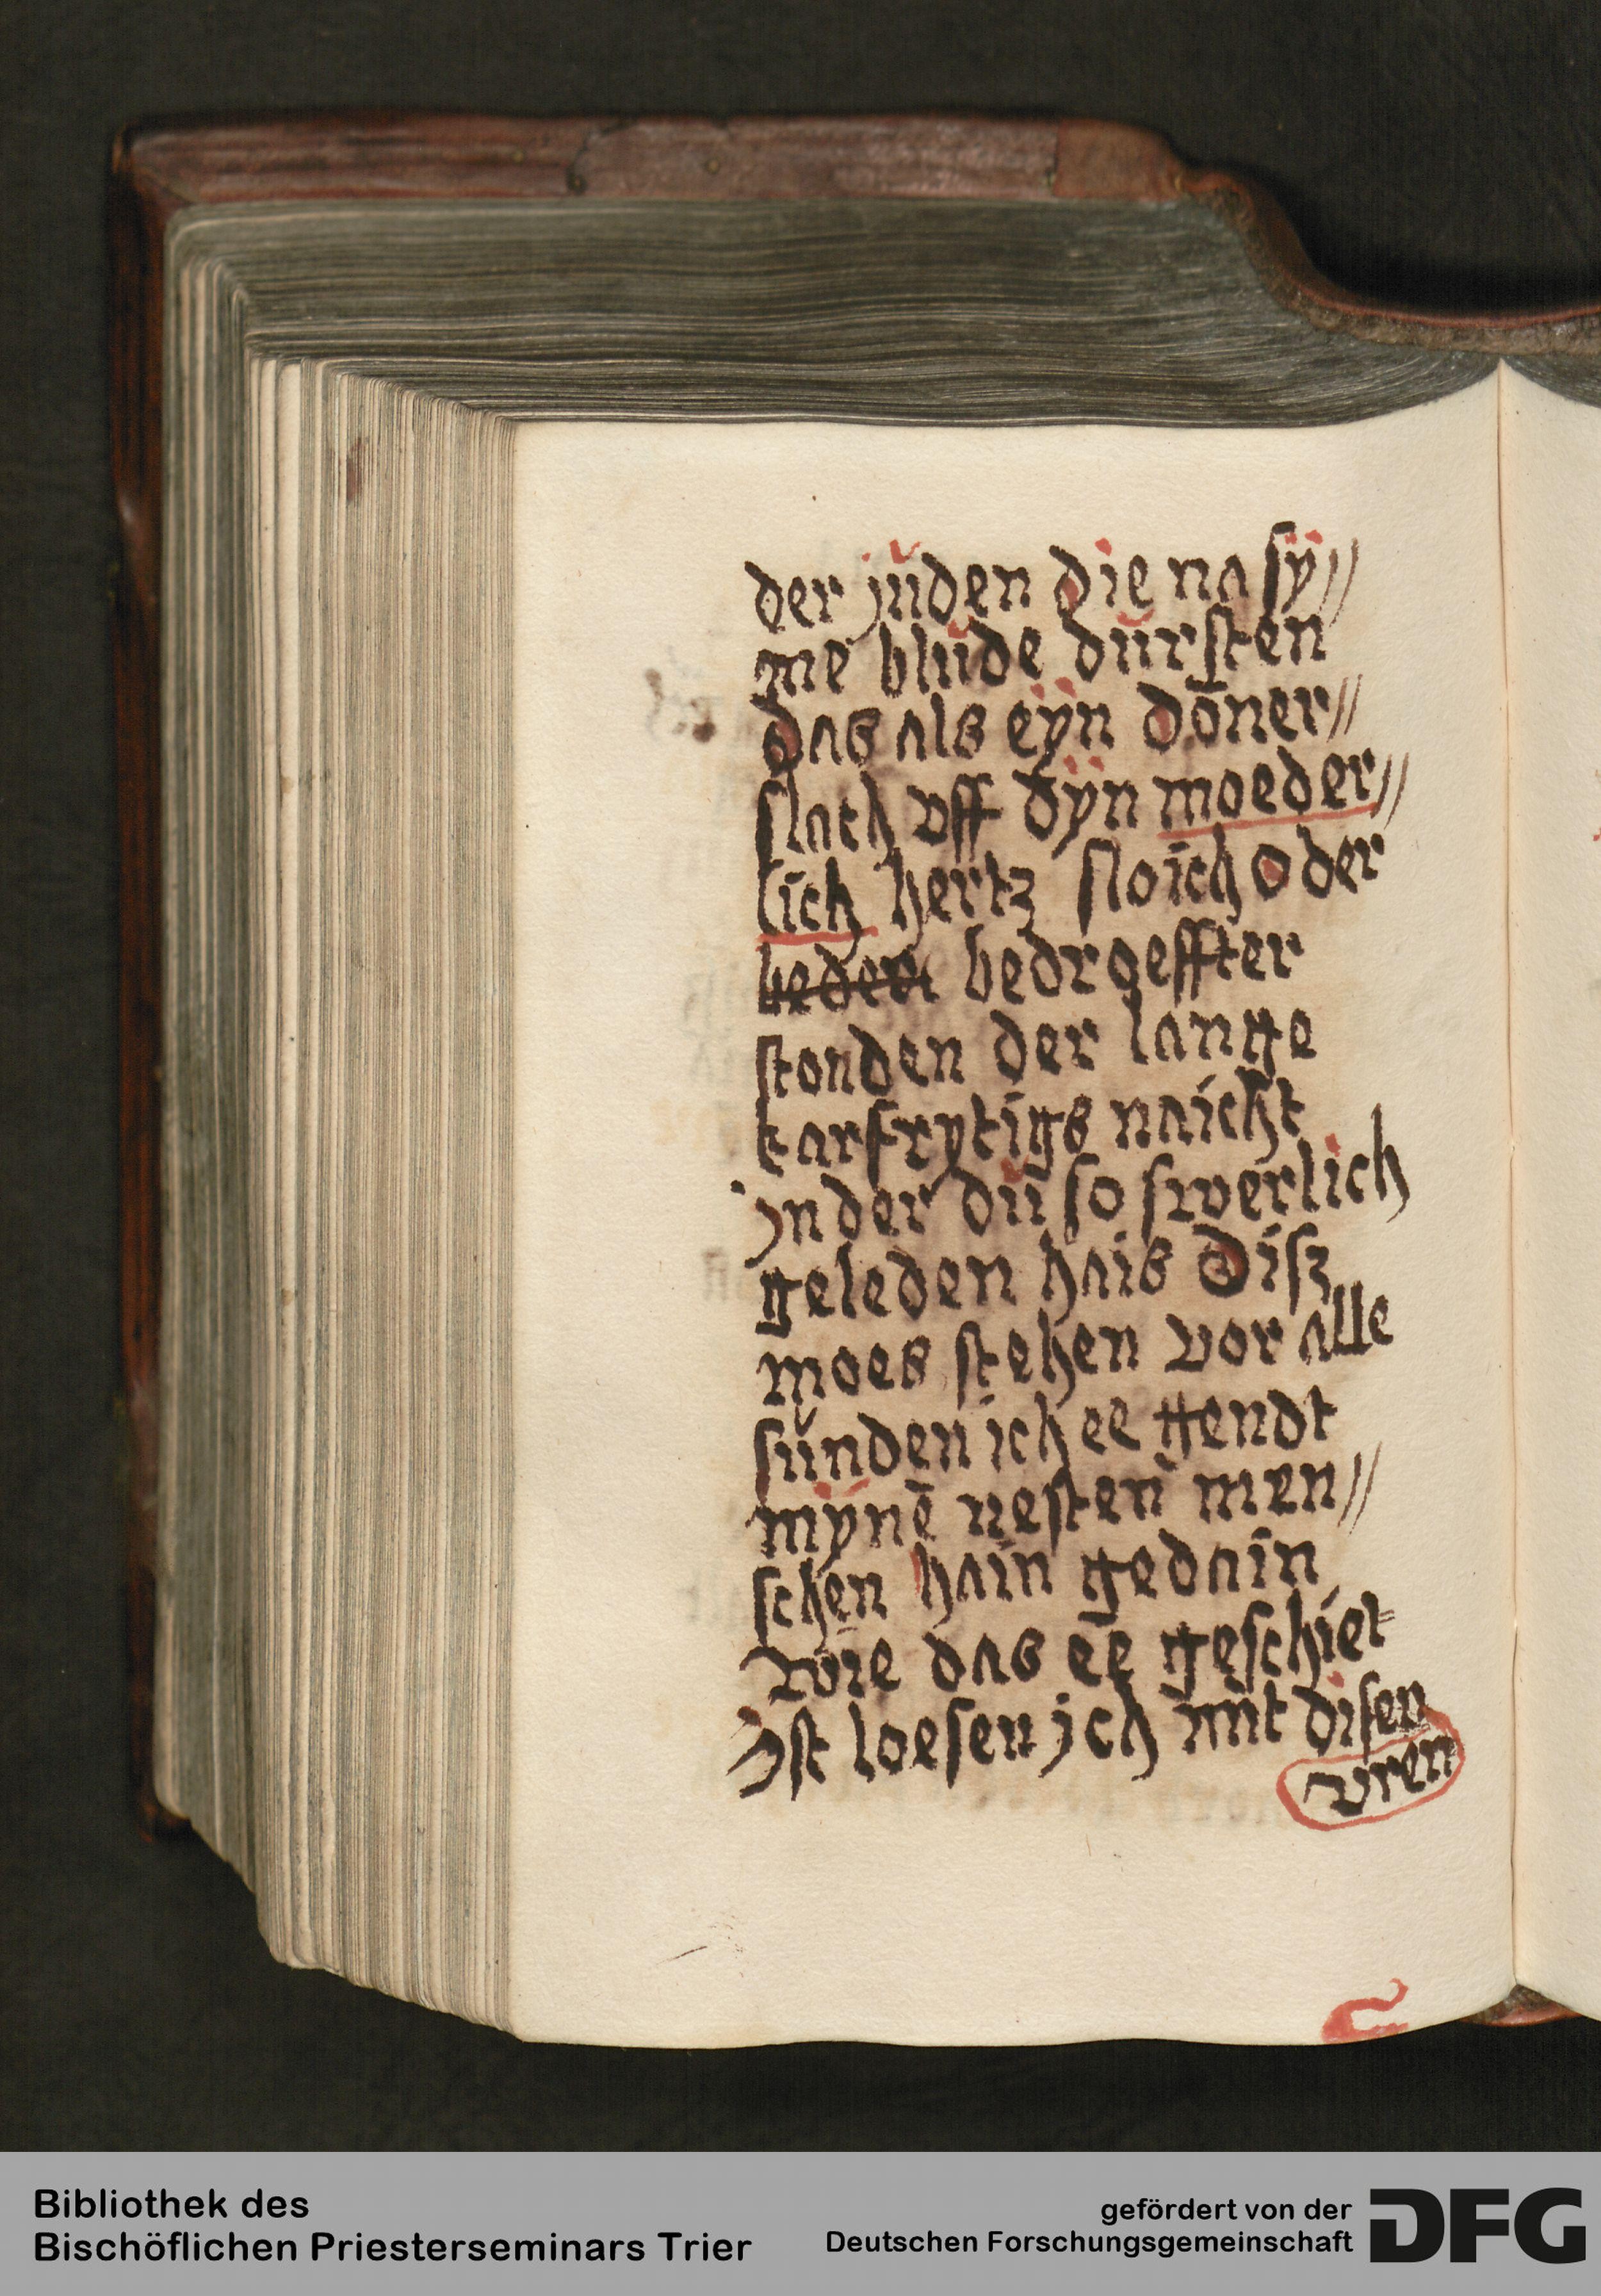 der jŭden die na sÿ//
me blŭde dŭrsten
das als eÿn dōner//
slach vff dÿn moeder//
lich hertz sloich O der
beder bedroeffter
stonden der lange
karfrytigs naicht
jn der dŭ so swerlich
geleden hais Disz
moes stehen vor alle
sŭnden ich ee gendt
mÿnē nesten men//
schen hain gedain
Wie das ee geschiet
Ist loesen jch mit disen
vren
Bibliothek des
Bischöflichen Priesterseminars Trier
gefördert von der
Deutschen Forschungsgemeinschaft
DFG